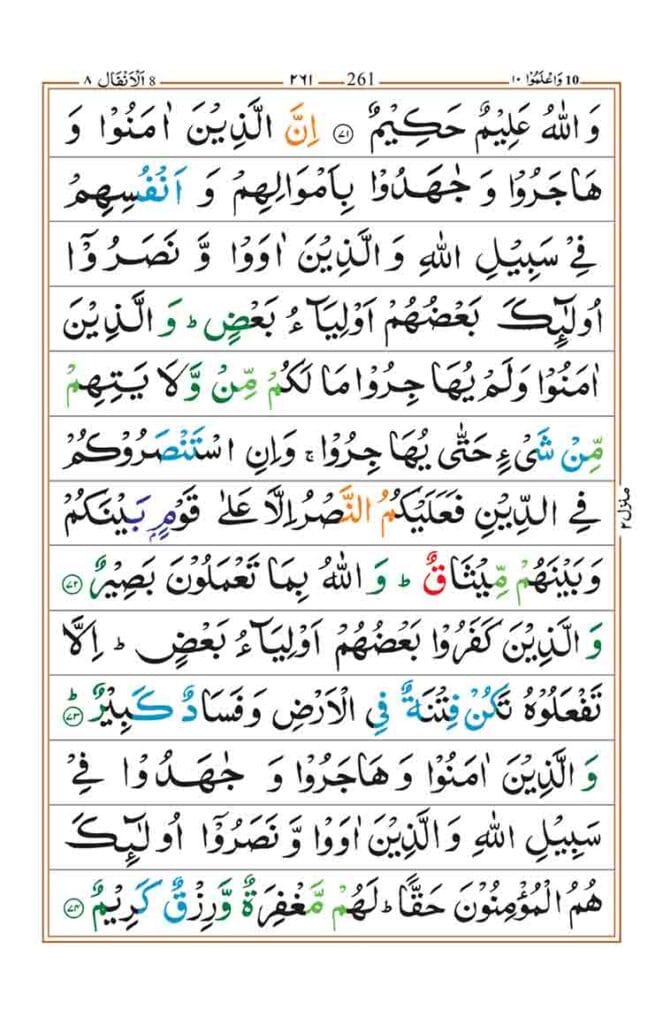 8 اَلْاَنْفَال ٨ — ٢٦١ — 261 — وَاعْلَمُوْۤا ١٠ 10
وَ اللّٰهُ عَلِيْمٌ حَكِيْمٌ ﴿٧١﴾ اِنَّ الَّذِيْنَ اٰمَنُوْا وَ
هَاجَرُوْا وَ جٰهَدُوْا بِاَمْوَالِهِمْ وَ اَنْفُسِهِمْ
فِيْ سَبِيْلِ اللّٰهِ وَ الَّذِيْنَ اٰوَوْا وَّ نَصَرُوْۤا
اُولٰٓئِكَ بَعْضُهُمْ اَوْلِيَآءُ بَعْضٍ ؕ وَ الَّذِيْنَ
اٰمَنُوْا وَلَمْ يُهَاجِرُوْا مَا لَكُمْ مِّنْ وَّلَا يَتِهِمْ
مِّنْ شَيْءٍ حَتّٰى يُهَاجِرُوْا ۚ وَاِنِ اسْتَنْصَرُوْكُمْ
فِي الدِّيْنِ فَعَلَيْكُمُ النَّصْرُ اِلَّا عَلٰى قَوْمٍۭ بَيْنَكُمْ
وَبَيْنَهُمْ مِّيْثَاقٌ ؕ وَ اللّٰهُ بِمَا تَعْمَلُوْنَ بَصِيْرٌ ﴿٧٢﴾
وَ الَّذِيْنَ كَفَرُوْا بَعْضُهُمْ اَوْلِيَآءُ بَعْضٍ ؕ اِلَّا
تَفْعَلُوْهُ تَكُنْ فِتْنَةٌ فِي الْاَرْضِ وَفَسَادٌ كَبِيْرٌ ؕ﴿٧٣﴾
وَ الَّذِيْنَ اٰمَنُوْا وَ هَاجَرُوْا وَ جٰهَدُوْا فِيْ
سَبِيْلِ اللّٰهِ وَ الَّذِيْنَ اٰوَوْا وَّ نَصَرُوْۤا اُولٰٓئِكَ
هُمُ الْمُؤْمِنُوْنَ حَقًّا ؕ لَهُمْ مَّغْفِرَةٌ وَّرِزْقٌ كَرِيْمٌ ﴿٧٤﴾
منزل ٢